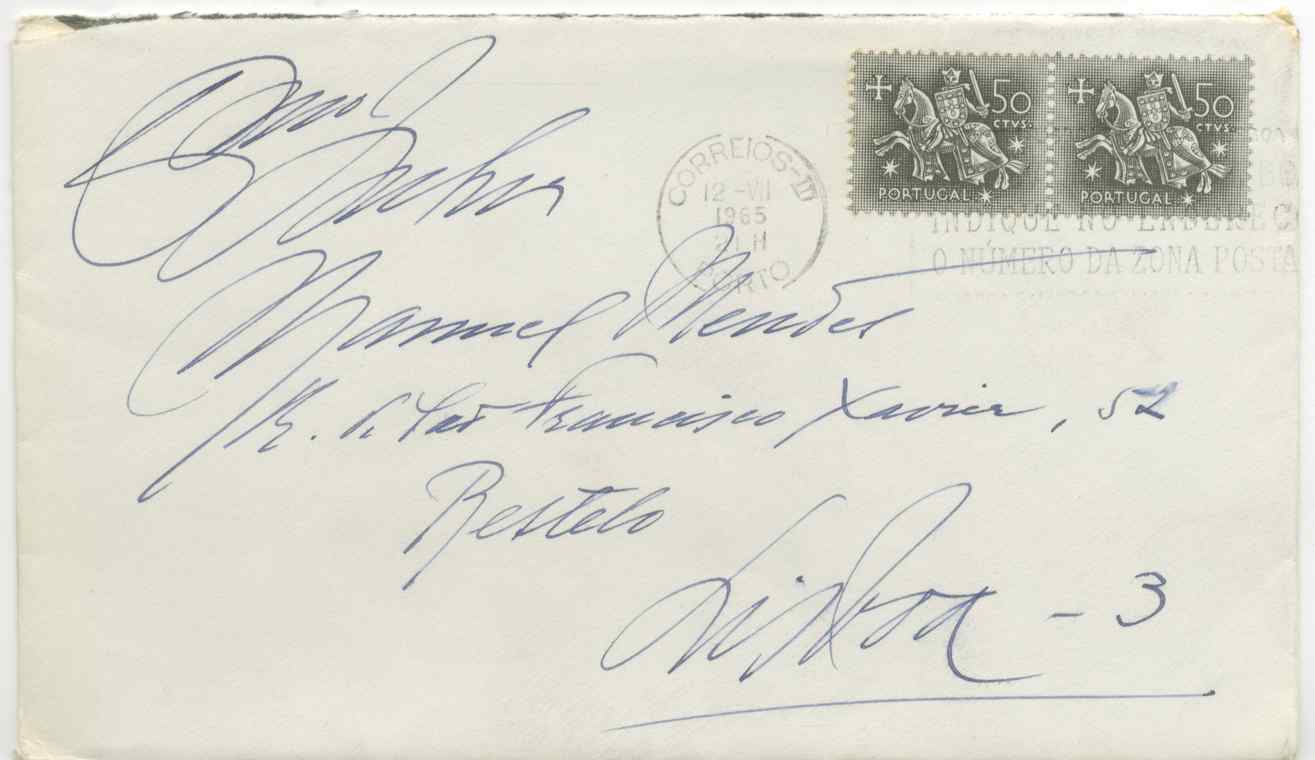 Exmo
Senhor
Manuel Mendes
R. de São Francisco Xavier, 52
Restelo
Lisboa - 3
50
CTVS.
PORTUGAL
50
CTVS.
PORTUGAL
CORREIOS-III
12-VII
1965
21H
PORTO
INDIQUE NO ENDEREÇ
O NÚMERO DA ZONA POSTA